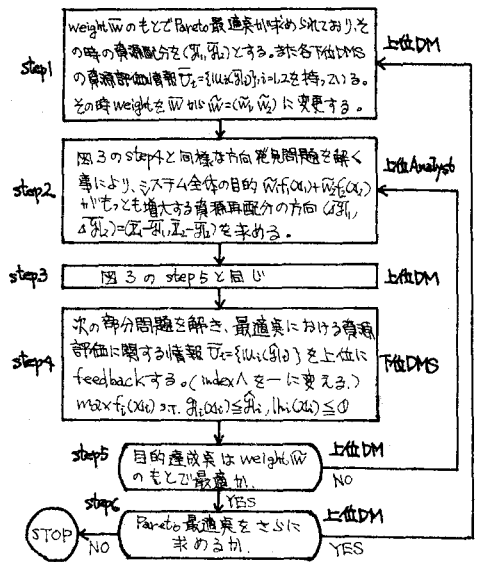 step1
weight w̄ のもとでPareto最適点が求められており、そ
の時の資源配分を(ȳ1, ȳ2)とする。また各下位DMS
の資源評価情報 Ū𝑖={u𝑖(ȳ𝑖)}, i=1,2を持っている。
その時weightを w̄ から w̃=(w̃1, w̃2) に変更する。
上位DM
step2
図3のstep4と同様な方向発見問題を解く
事により、システム全体の目的 w̃1f1(x1)+w̃2f2(x2)
がもっとも増大する資源再配分の方向(Δȳ1,
を求める。
上位Analyst
step3
図3のstep5と同じ
上位DM
step4
次の部分問題を解き、最適点における資源
評価に関する情報 を上位に
feedbackする。(index∧を一に変える。)
max f𝑖(x𝑖) s.t.
下位DMS
step5
目的達成点はweight w̃
のもとで最適か.
上位DM
NO
YES
step6
Pareto最適点をさらに
求めるか.
上位DM
STOP
NO
YES